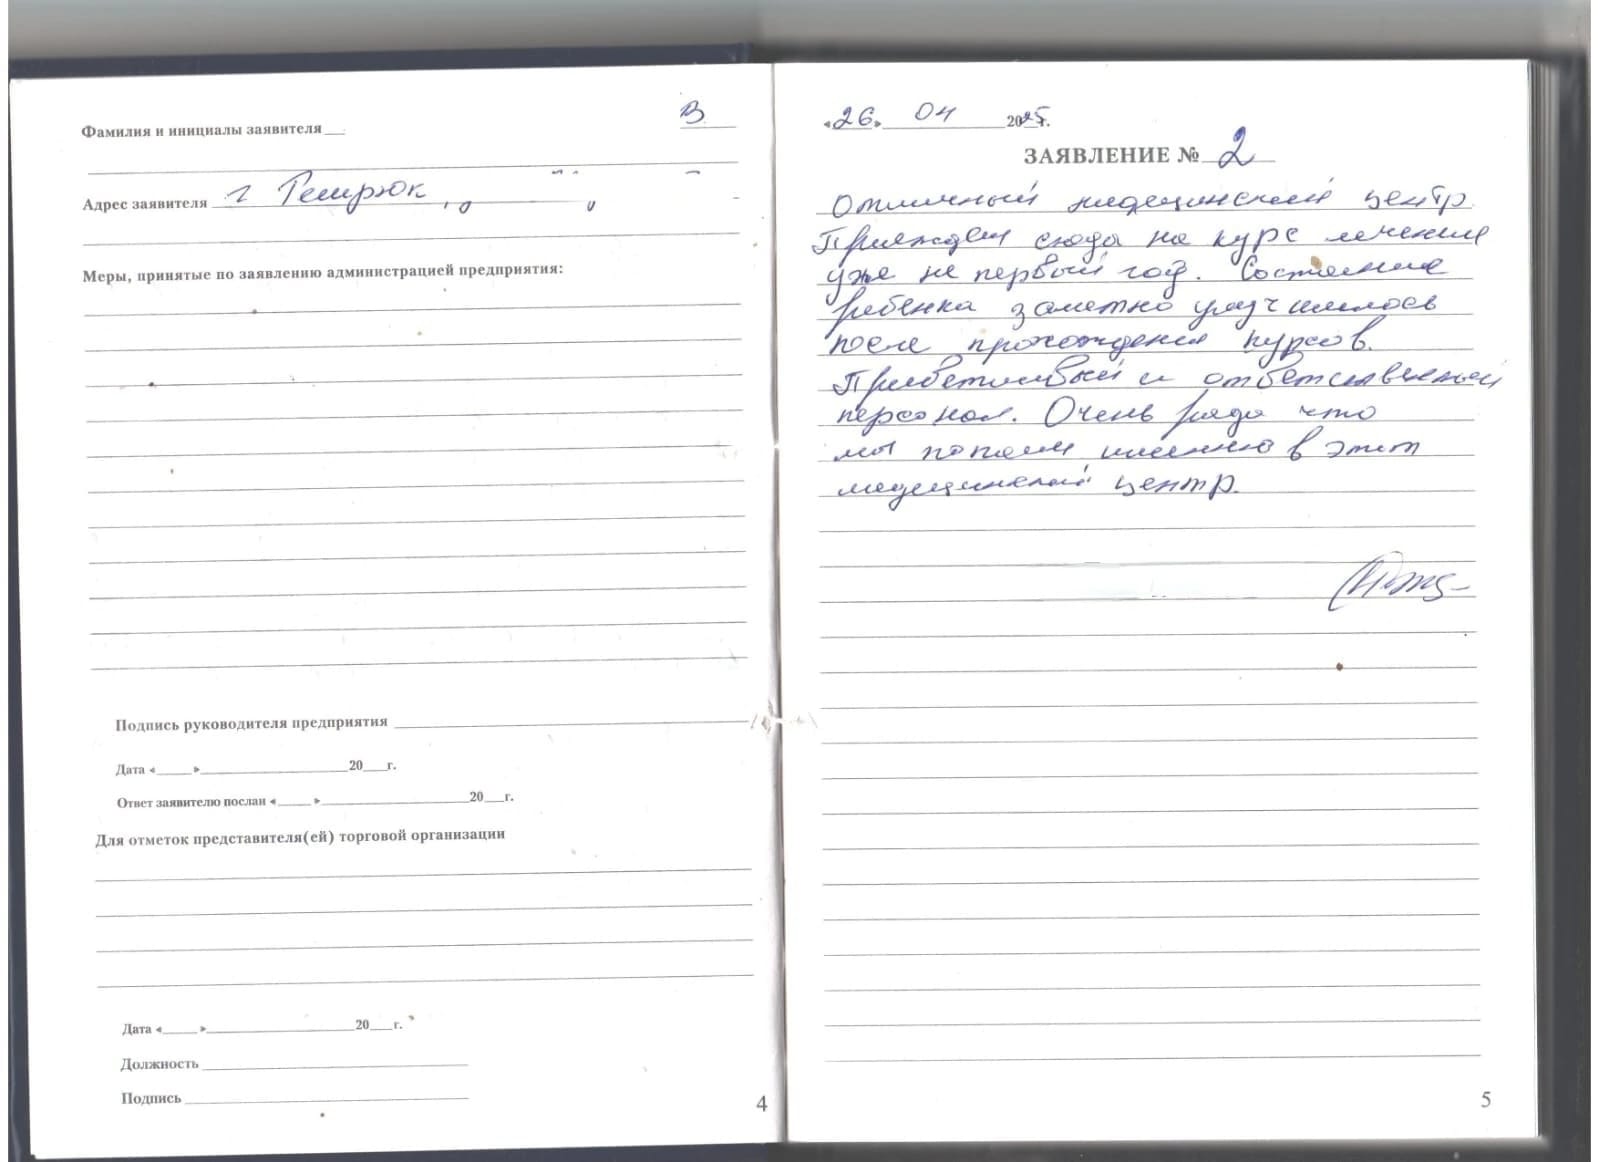 Фамилия и инициалы заявителя В
Адрес заявителя г Темрюк,
Меры, принятые по заявлению администрацией предприятия:
Подпись руководителя предприятия
Дата «____»____20__г.
Ответ заявителю послан «____»____20__г.
Для отметок представителя(ей) торговой организации
Дата «____»____20__г.
Должность
Подпись
4
«26» 04 2025г.
ЗАЯВЛЕНИЕ № 2
Отличный медецинский центр.
Приезждаем сюда на курс лечения
уже не первый год. Состояние
ребенка заметно улучшилось
после прохождения курсов.
Приветливый и ответственный
персонал. Очень рада что
мы попали именно в этот
медецинский центр.
5